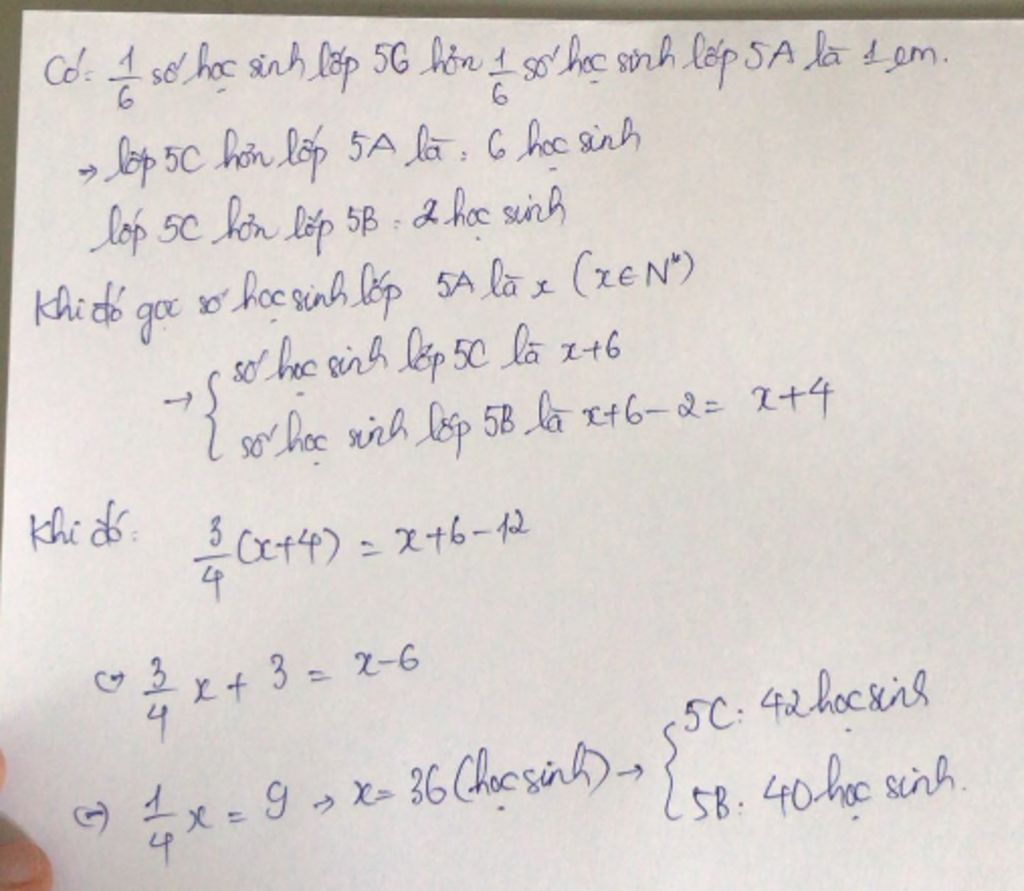 Có: 1/6 số học sinh lớp 5C hơn 1/6 số học sinh lớp 5A là 1 em.
→ lớp 5C hơn lớp 5A là: 6 học sinh
lớp 5C hơn lớp 5B: 2 học sinh
Khi đó gọi số học sinh lớp 5A là x (x∈N*)
→ { số học sinh lớp 5C là x+6
số học sinh lớp 5B là x+6-2= x+4
Khi đó: 3/4 (x+4) = x+6-12
⇔ 3/4 x + 3 = x-6
⇔ 1/4 x = 9 → x= 36 (học sinh) → { 5C: 42 học sinh
5B: 40 học sinh.